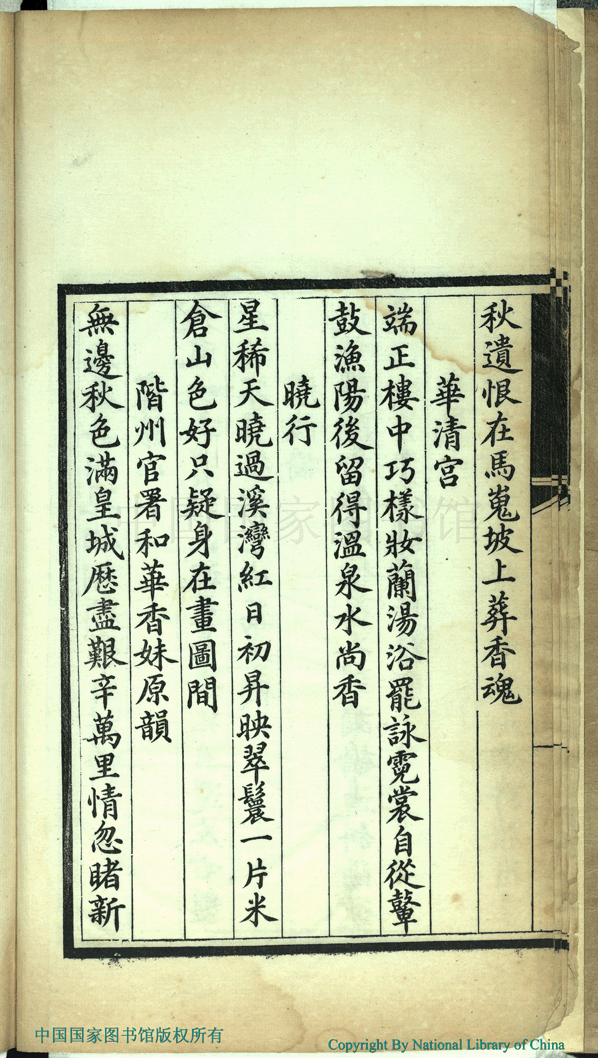 秋遺恨在馬嵬坡上葬香魂
華清宮
端正樓中巧樣妝蘭湯浴罷詠霓裳自從鼙
鼓漁陽後留得溫泉水尚香
曉行
星稀天曉過溪灣紅日初昇映翠鬟一片米
倉山色好只疑身在畫圖間
階州官署和華香妹原韻
無邊秋色滿皇城歷盡艱辛萬里情忽睹新
中国国家图书馆
中国国家图书馆版权所有
Copyright By National Library of China